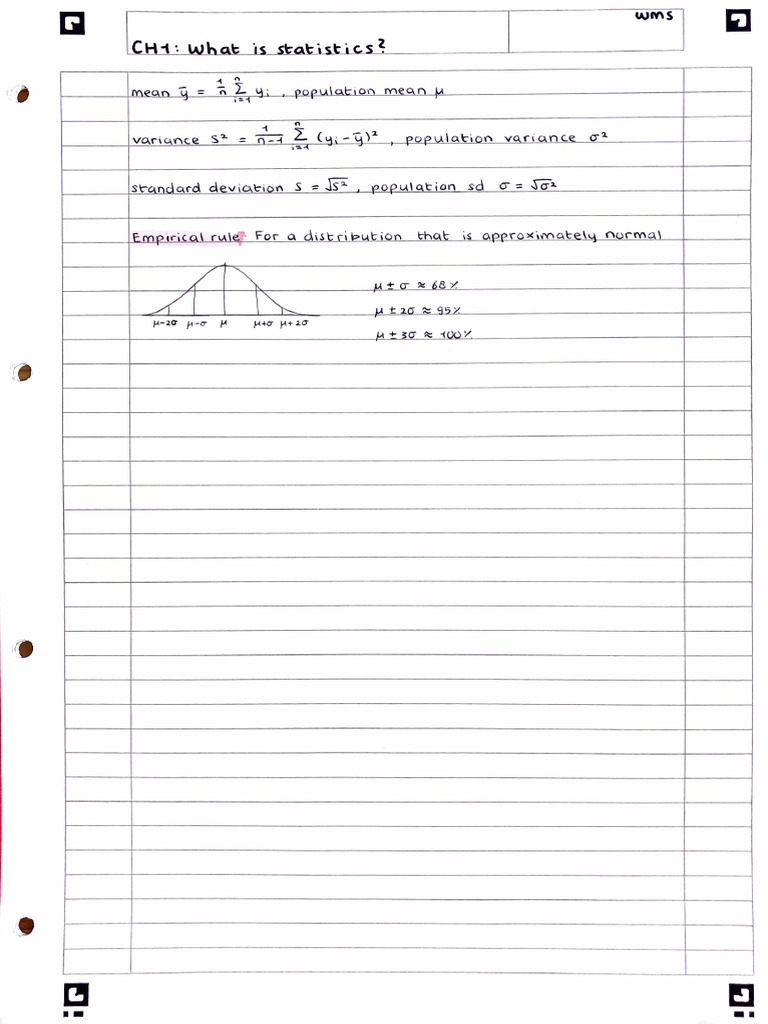 wms
CH1: What is statistics?
mean ȳ = 1/n Σ_{i=1}^{n} yᵢ , population mean μ
variance S² = 1/(n-1) Σ_{i=1}^{n} (yᵢ - ȳ)² , population variance σ²
standard deviation S = √S² , population sd σ = √σ²
Empirical rule For a distribution that is approximately normal
μ ± σ ≈ 68%
μ ± 2σ ≈ 95%
μ ± 3σ ≈ 100%
μ-2σ μ-σ μ μ+σ μ+2σ